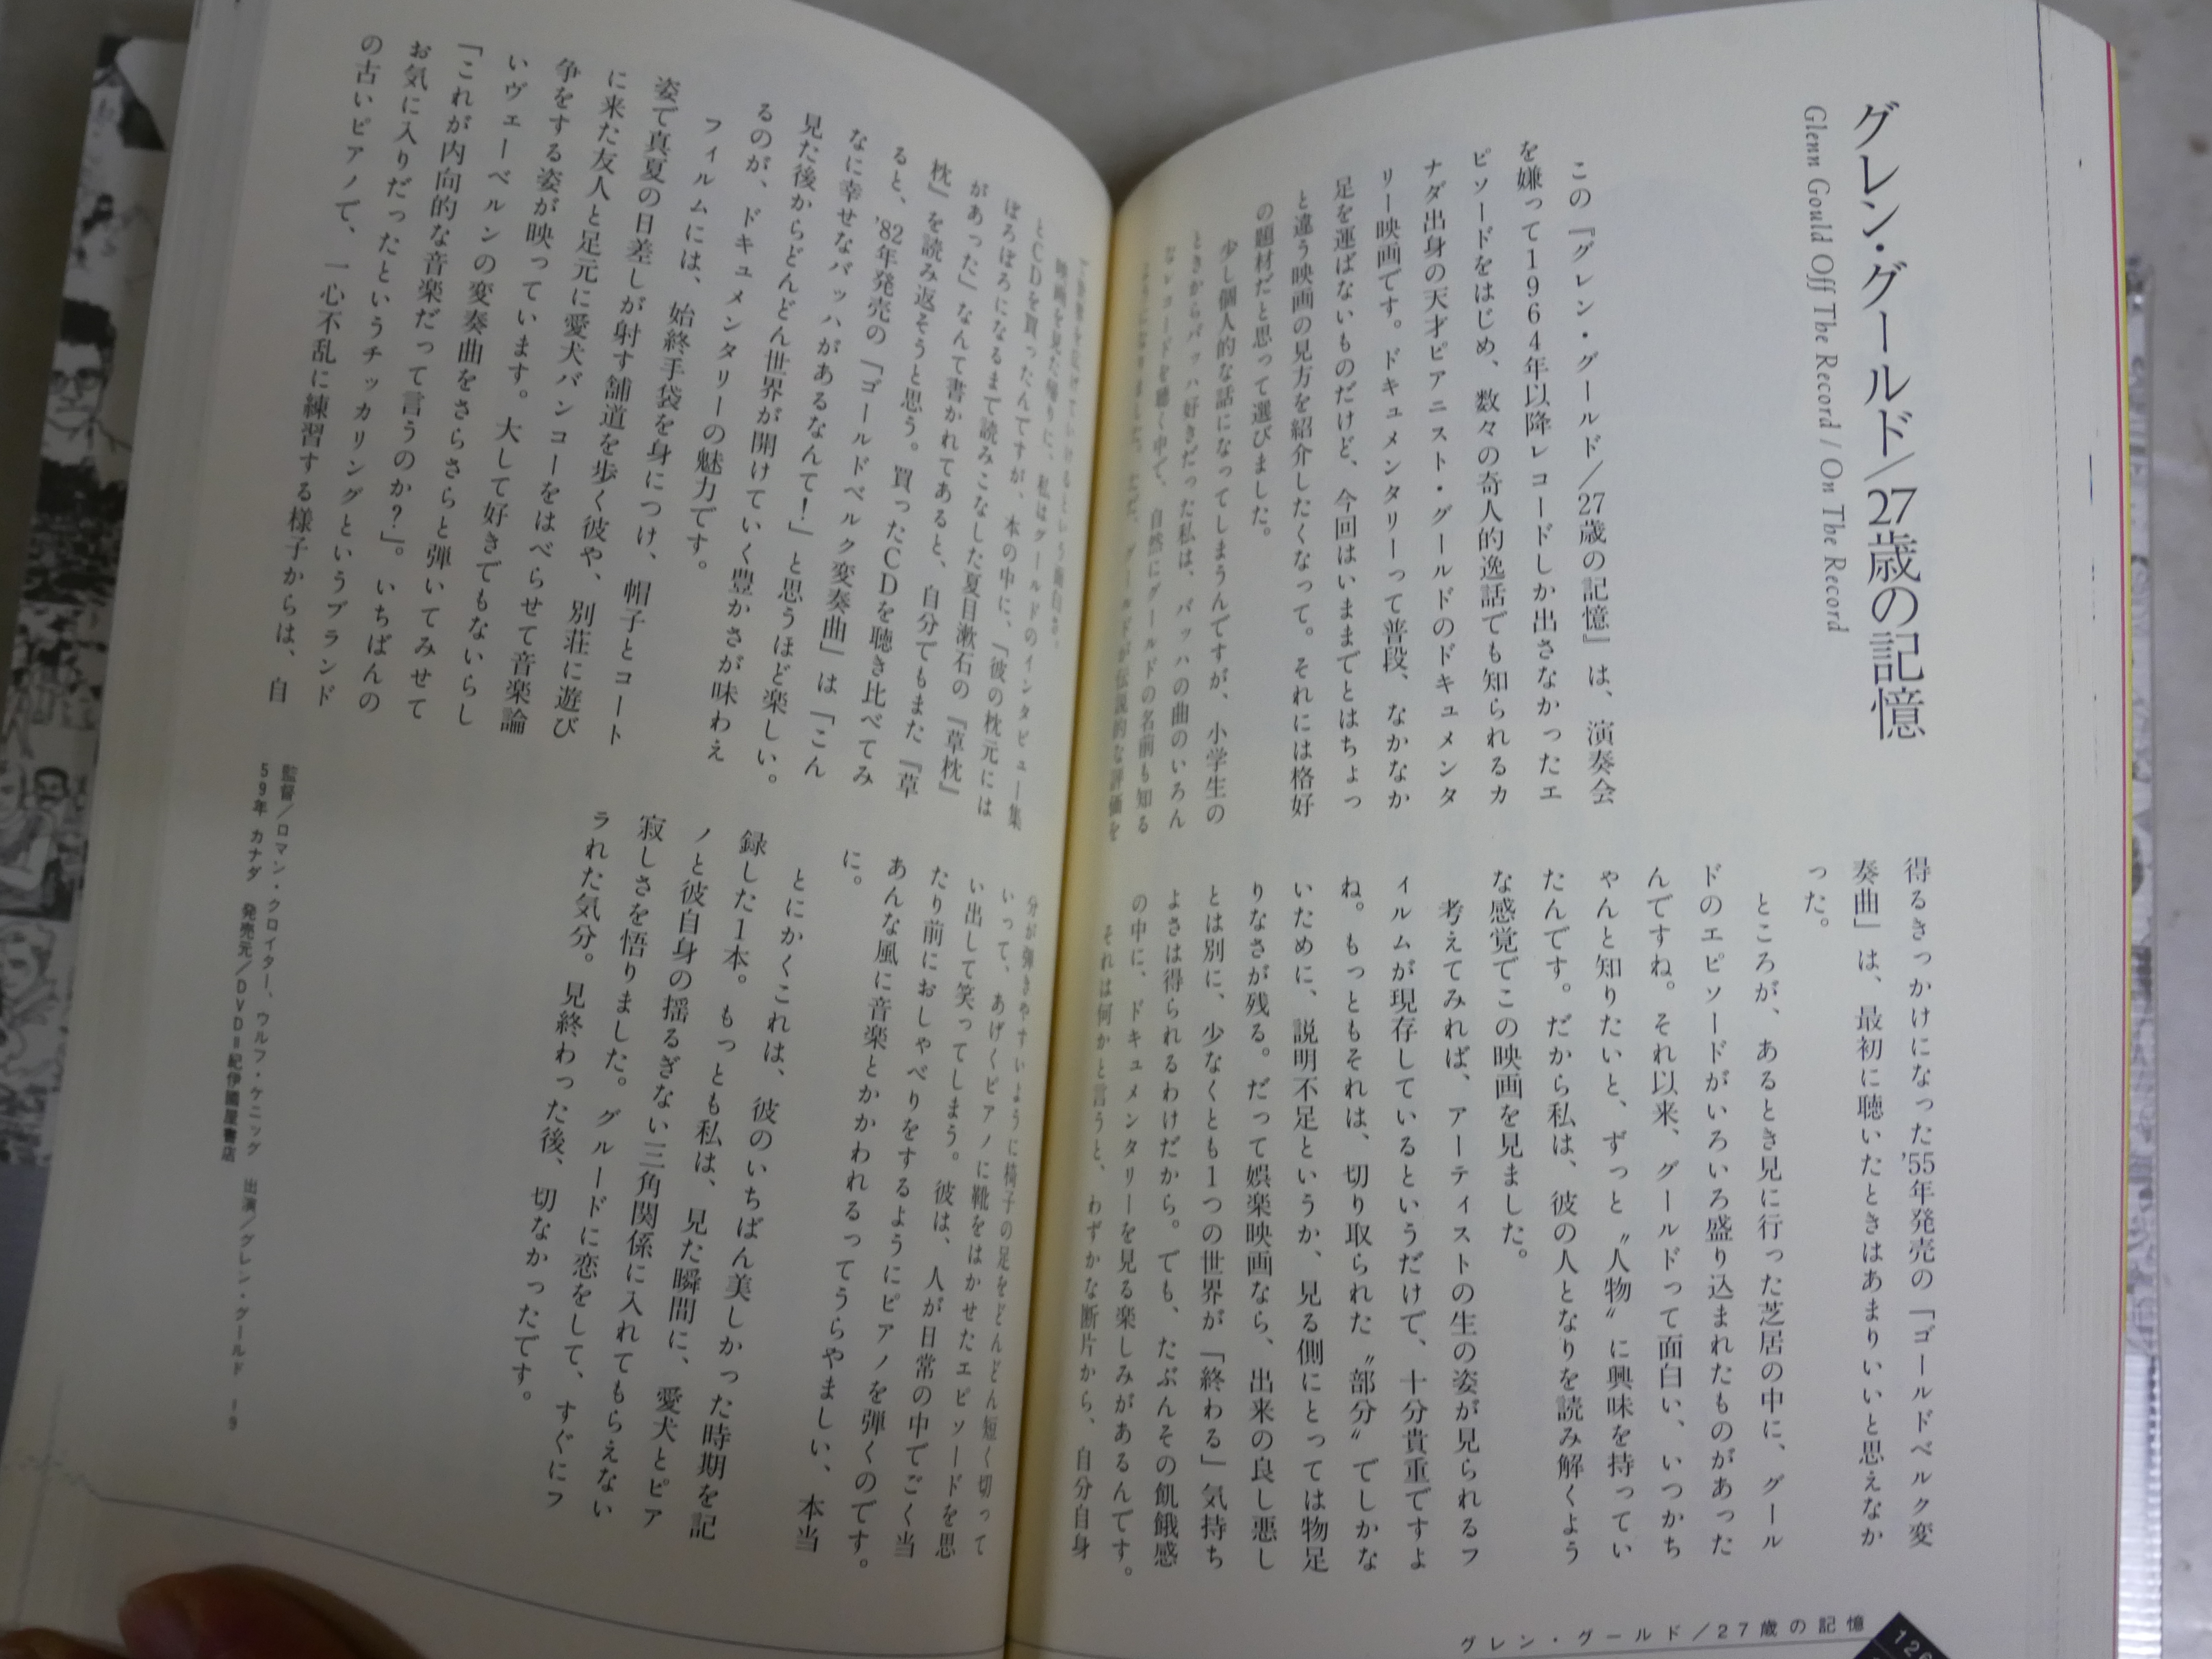 グレン・グールド/27歳の記憶
Glenn Gould Off The Record / On The Record
この『グレン・グールド/27歳の記憶』は、演奏会
を嫌って1964年以降レコードしか出さなかったエ
ピソードをはじめ、数々の奇人的逸話でも知られるカ
ナダ出身の天才ピアニスト・グールドのドキュメンタ
リー映画です。ドキュメンタリーって普段、なかなか
足を運ばないものだけど、今回はいままでとはちょっ
と違う映画の見方を紹介したくなって。それには格好
の題材だと思って選びました。
少し個人的な話になってしまうんですが、小学生の
ときからバッハ好きだった私は、バッハの曲のいろん
なレコードを聴く中で、自然にグールドの名前も知る
グールドが伝説的な評価を
得るきっかけになった'55年発売の「ゴールドベルク変
奏曲」は、最初に聴いたときはあまりいいと思えなか
った。
ところが、あるとき見に行った芝居の中に、グール
ドのエピソードがいろいろ盛り込まれたものがあった
んですね。それ以来、グールドって面白い、いつかち
ゃんと知りたいと、ずっと〝人物〟に興味を持ってい
たんです。だから私は、彼の人となりを読み解くよう
な感覚でこの映画を見ました。
考えてみれば、アーティストの生の姿が見られるフ
ィルムが現存しているというだけで、十分貴重ですよ
ね。もっともそれは、切り取られた〝部分〟でしかな
いために、説明不足というか、見る側にとっては物足
りなさが残る。だって娯楽映画なら、出来の良し悪し
とは別に、少なくとも1つの世界が「終わる」気持ち
よさは得られるわけだから。でも、たぶんその飢餓感
の中に、ドキュメンタリーを見る楽しみがあるんです。
それは何かと言うと、わずかな断片から、自分自身
グレン・グールド/27歳の記憶
映画を見た帰りに、私はグールドのインタビュー集
とCDを買ったんですが、本の中に、「彼の枕元には
ぼろぼろになるまで読みこなした夏目漱石の『草枕』
があった」なんて書かれてあると、自分でもまた『草
枕』を読み返そうと思う。買ったCDを聴き比べてみ
ると、'82年発売の「ゴールドベルク変奏曲」は「こん
なに幸せなバッハがあるなんて!」と思うほど楽しい。
見た後からどんどん世界が開けていく豊かさが味わえ
るのが、ドキュメンタリーの魅力です。
フィルムには、始終手袋を身につけ、帽子とコート
姿で真夏の日差しが射す舗道を歩く彼や、別荘に遊び
に来た友人と足元に愛犬バンコーをはべらせて音楽論
争をする姿が映っています。大して好きでもないらし
いヴェーベルンの変奏曲をさらさらと弾いてみせて
「これが内向的な音楽だって言うのか?」。いちばんの
お気に入りだったというチッカリングというブランド
の古いピアノで、一心不乱に練習する様子からは、自
分が弾きやすいように椅子の足をどんどん短く切って
いって、あげくピアノに靴をはかせたエピソードを思
い出して笑ってしまう。彼は、人が日常の中でごく当
たり前におしゃべりをするようにピアノを弾くのです。
あんな風に音楽とかかわれるってうらやましい、本当
に。
とにかくこれは、彼のいちばん美しかった時期を記
録した1本。もっとも私は、見た瞬間に、愛犬とピア
ノと彼自身の揺るぎない三角関係に入れてもらえない
寂しさを悟りました。グルードに恋をして、すぐにフ
ラれた気分。見終わった後、切なかったです。
監督/ロマン・クロイター、ウルフ・ケニッグ 出演/グレン・グールド 19
59年 カナダ 発売元/DVD=紀伊國屋書店